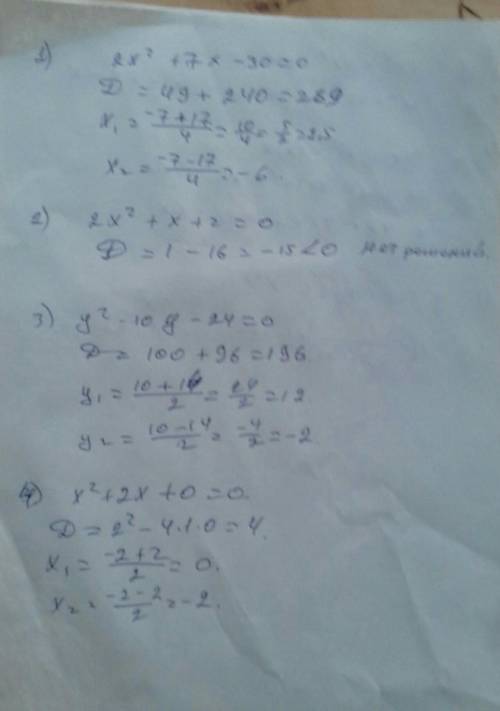 1) 2x² + 7x - 30 = 0
D = 49 + 240 = 289
x₁ = (-7+17)/4 = 10/4 = 5/2 = 2.5
x₂ = (-7-17)/4 = -6.
2) 2x² + x + 2 = 0
D = 1 - 16 = -15 < 0 нет решений.
3) y² - 10y - 24 = 0
D = 100 + 96 = 196
y₁ = (10+14)/2 = 24/2 = 12
y₂ = (10-14)/2 = -4/2 = -2
4) x² + 2x + 0 = 0.
D = 2² - 4·1·0 = 4.
x₁ = (-2+2)/2 = 0.
x₂ = (-2-2)/2 = -2.